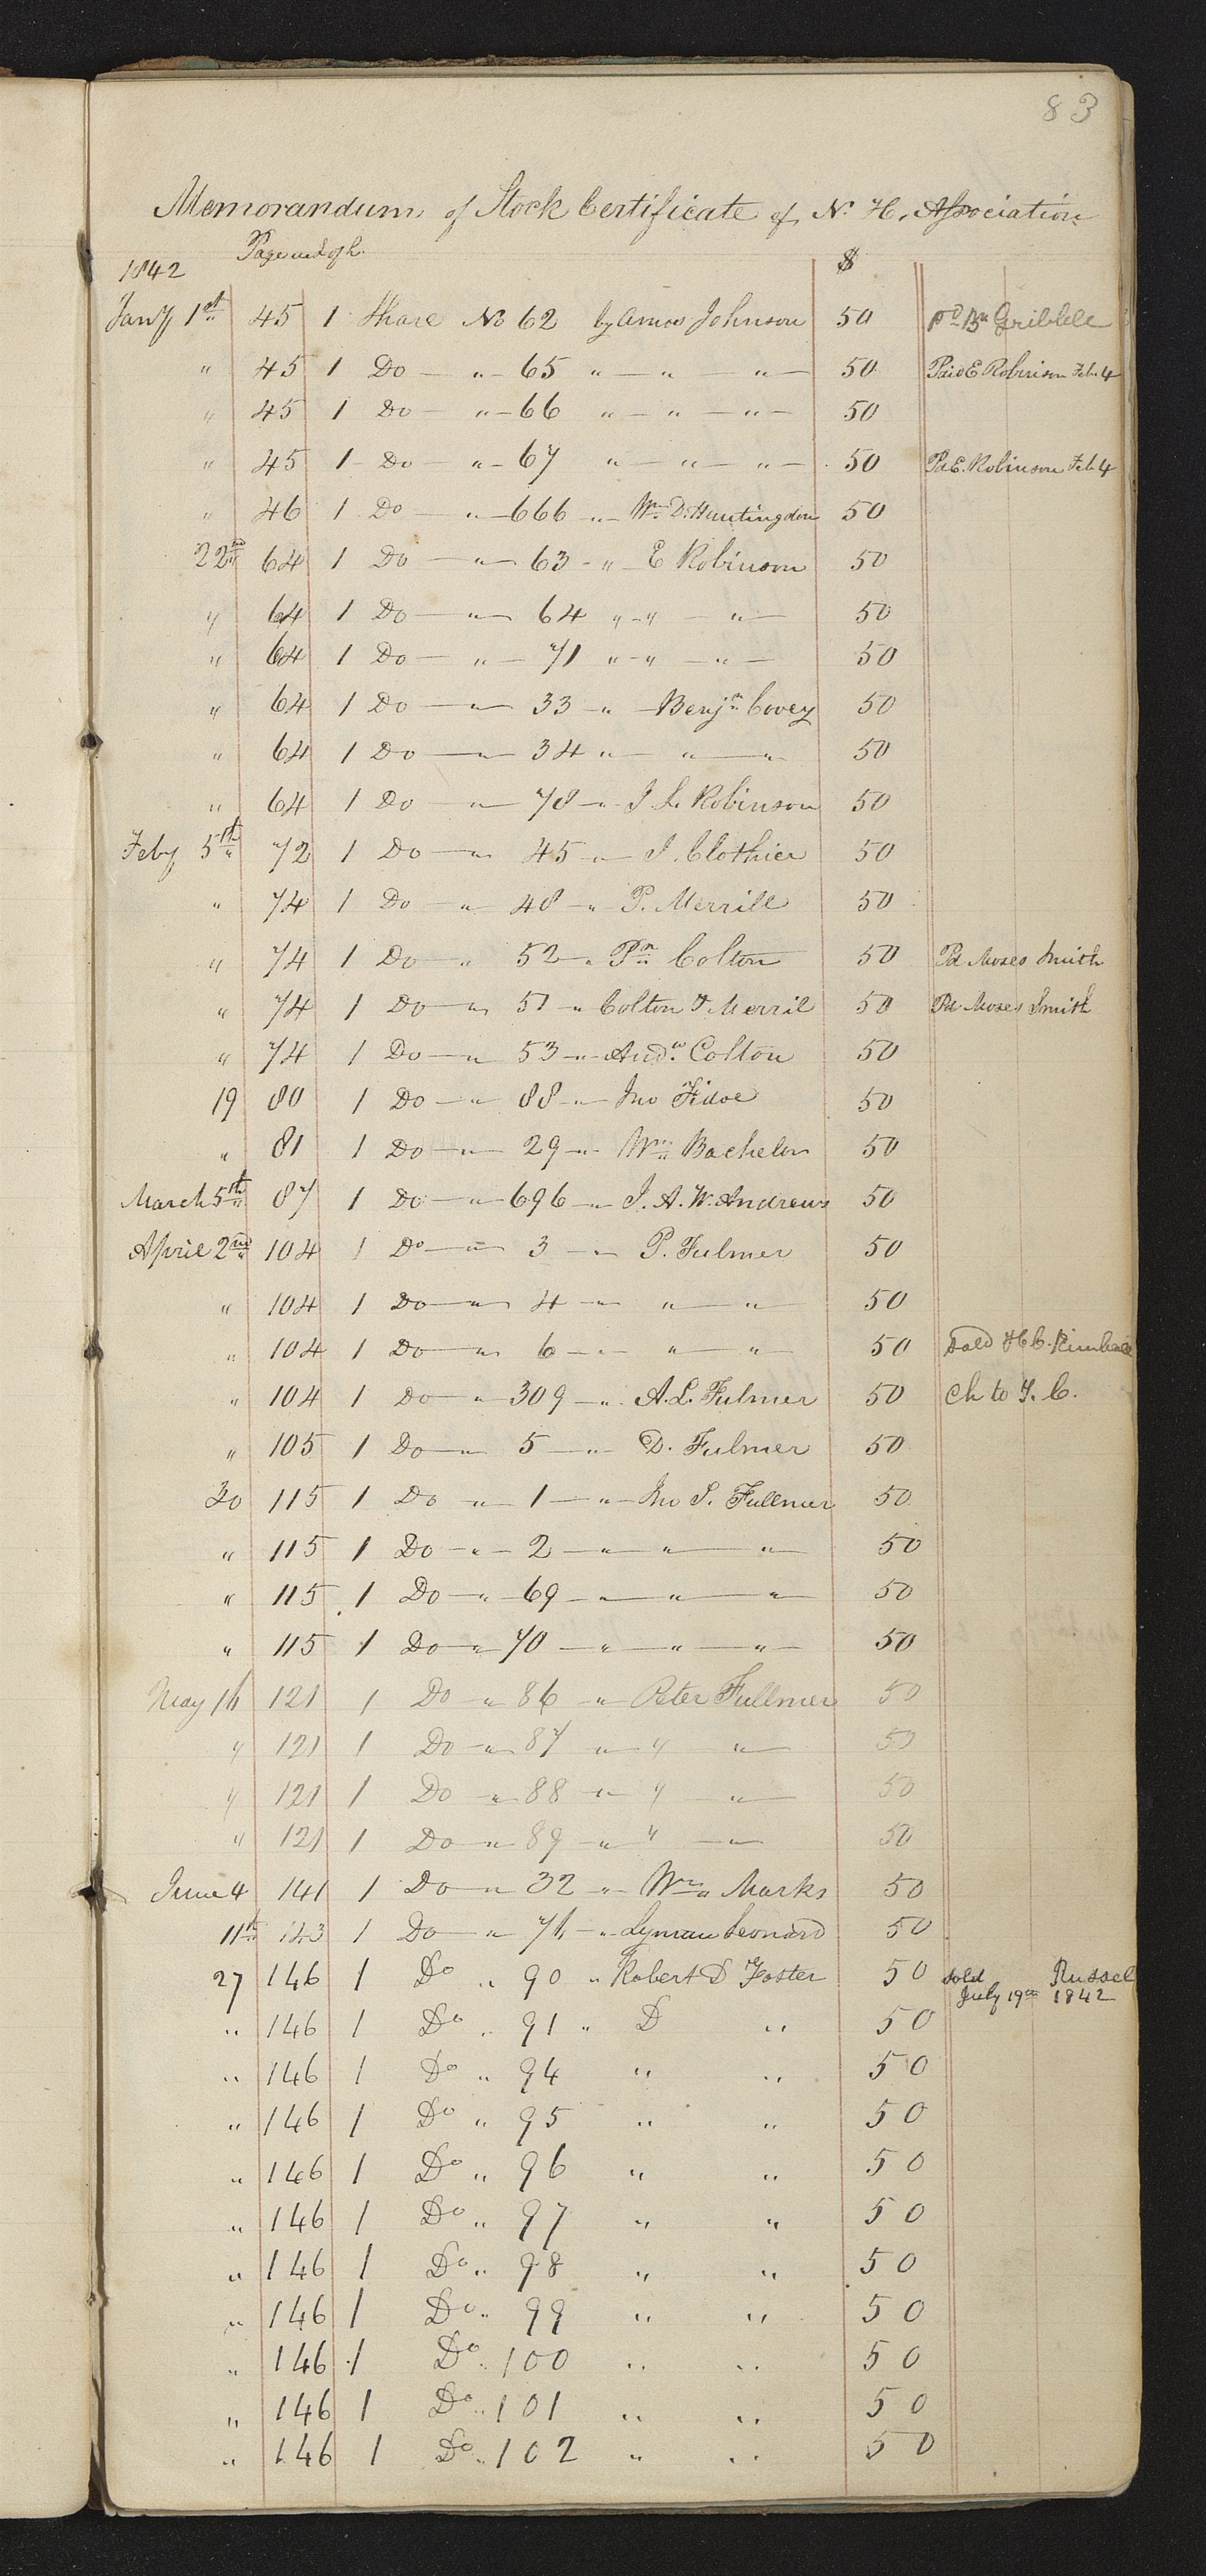 83
Memorandum of Stock Certificate of N. H. Association
1842 $
Jany 1st 45 1 Share No 62 by Amos Johnson 50 pd Bn Gribble
" 45 1 Do — " — 65 " — " — " — 50 Paid E Robinson Feb 4
" 45 1 Do — " — 66 " — " — " — 50
" 45 1 Do — " — 67 " — " — " — 50 Pd E. Robinson Feb 4
" 46 1 Do — " — 666 — " — Wm D. Huntingdon 50
22nd 64 1 Do — " — 63 - " — E Robinson 50
" 64 1 Do — " — 64 " - " — " — 50
" 64 1 Do — " — 71 " - " — " — 50
" 64 1 Do — " — 33 — " — Benjn Covey 50
" 64 1 Do — " — 34 " — " — " 50
" 64 1 Do — " — 78 — " — J. L. Robinson 50
Feby 5th 72 1 Do — " 45 — " — J. Clothier 50
" 74 1 Do — " 48 — " P. Merrill 50
" 74 1 Do — " 52 — " Pn Colton 50 Pd Moses Smith
" 74 1 Do — " 51 — " Colton & Merril 50 Pd Moses Smith
" 74 1 Do — " 53 — " Andw Colton 50
19 80 1 Do — " 88 — " — Jno Fidoe 50
" 81 1 Do — " — 29 — " Wm Bachelor 50
March 5th 87 1 Do — " — 696 — " J. A. W. Andrews 50
April 2nd 104 1 Do — " — 3 — " P. Fulmer 50
" 104 1 Do — " 4 — " — " — " — 50
" 104 1 Do — " 6 — " — " — " 50 Sold H C. Kimball
" 104 1 Do — " 309 — " A. L. Fulmer 50 Ch to T. C.
" 105 1 Do — " 5 — " D. Fulmer 50
30 115 1 Do — " — 1 — " — Jno S. Fullmer 50
" 115 1 Do — " — 2 — " — " — " — 50
" 115 1 Do — " — 69 — " — " — " 50
" 115 1 Do — " 70 — " — " — " — 50
May 16 121 1 Do — " 86 — " — Peter Fullmer 50
" 121 1 Do — " 87 — " — " " — 50
" 121 1 Do — " 88 — " — " " — 50
" 121 1 Do — " 89 — " — " — " — 50
June 4 141 1 Do — " 32 — " — Wm Marks 50
11th 143 1 Do — " — 76 — " Lyman Leonard 50
27 146 1 Do " 90 " Robert D Foster 50 sold Russel
July 19th 1842
" 146 1 Do " 91 " D " 50
" 146 1 Do " 94 " " 50
" 146 1 Do " 95 " " 50
" 146 1 Do " 96 " " 50
" 146 1 Do " 97 " " 50
" 146 1 Do " 98 " " 50
" 146 1 Do " 99 " " 50
" 146 1 Do " 100 " " 50
" 146 1 Do " 101 " " 50
" 146 1 Do " 102 " " 50